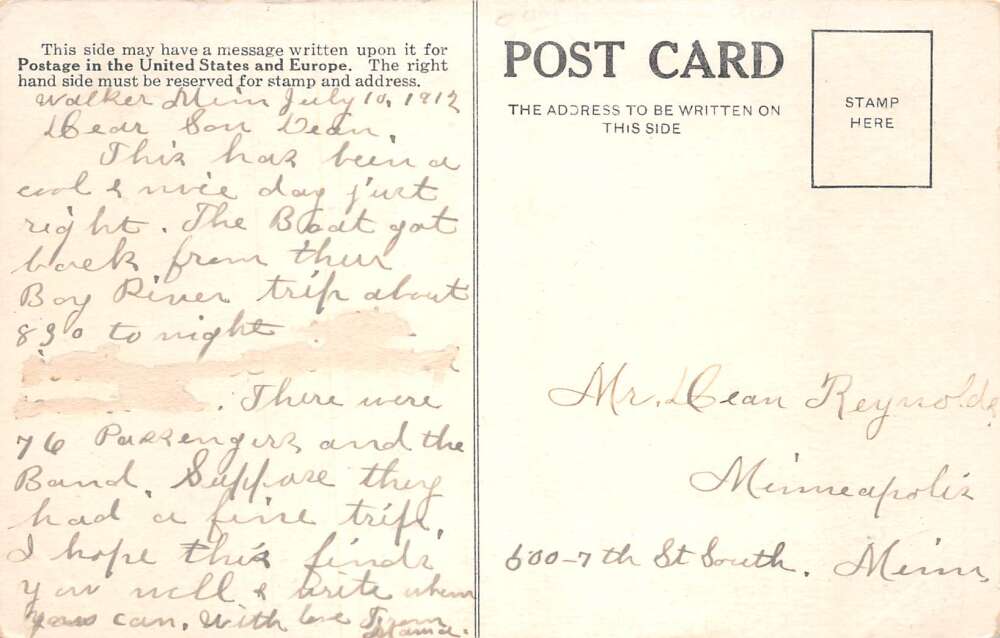 This side may have a message written upon it for
Postage in the United States and Europe. The right
hand side must be reserved for stamp and address.
Walker Minn July 10, 1912
Dear Son Dean,
This has been a
cool & nice day just
right. The Boat got
back from their
Boy River trip about
830 to night
. There were
76 Passengers and the
Band. Suppose they
had a fine trip.
I hope this finds
you well & write when
you can. With love From
Mama.
POST CARD
THE ADDRESS TO BE WRITTEN ON
THIS SIDE
STAMP
HERE
Mr. Dean Reynolds
Minneapolis
500-7th St South. Minn